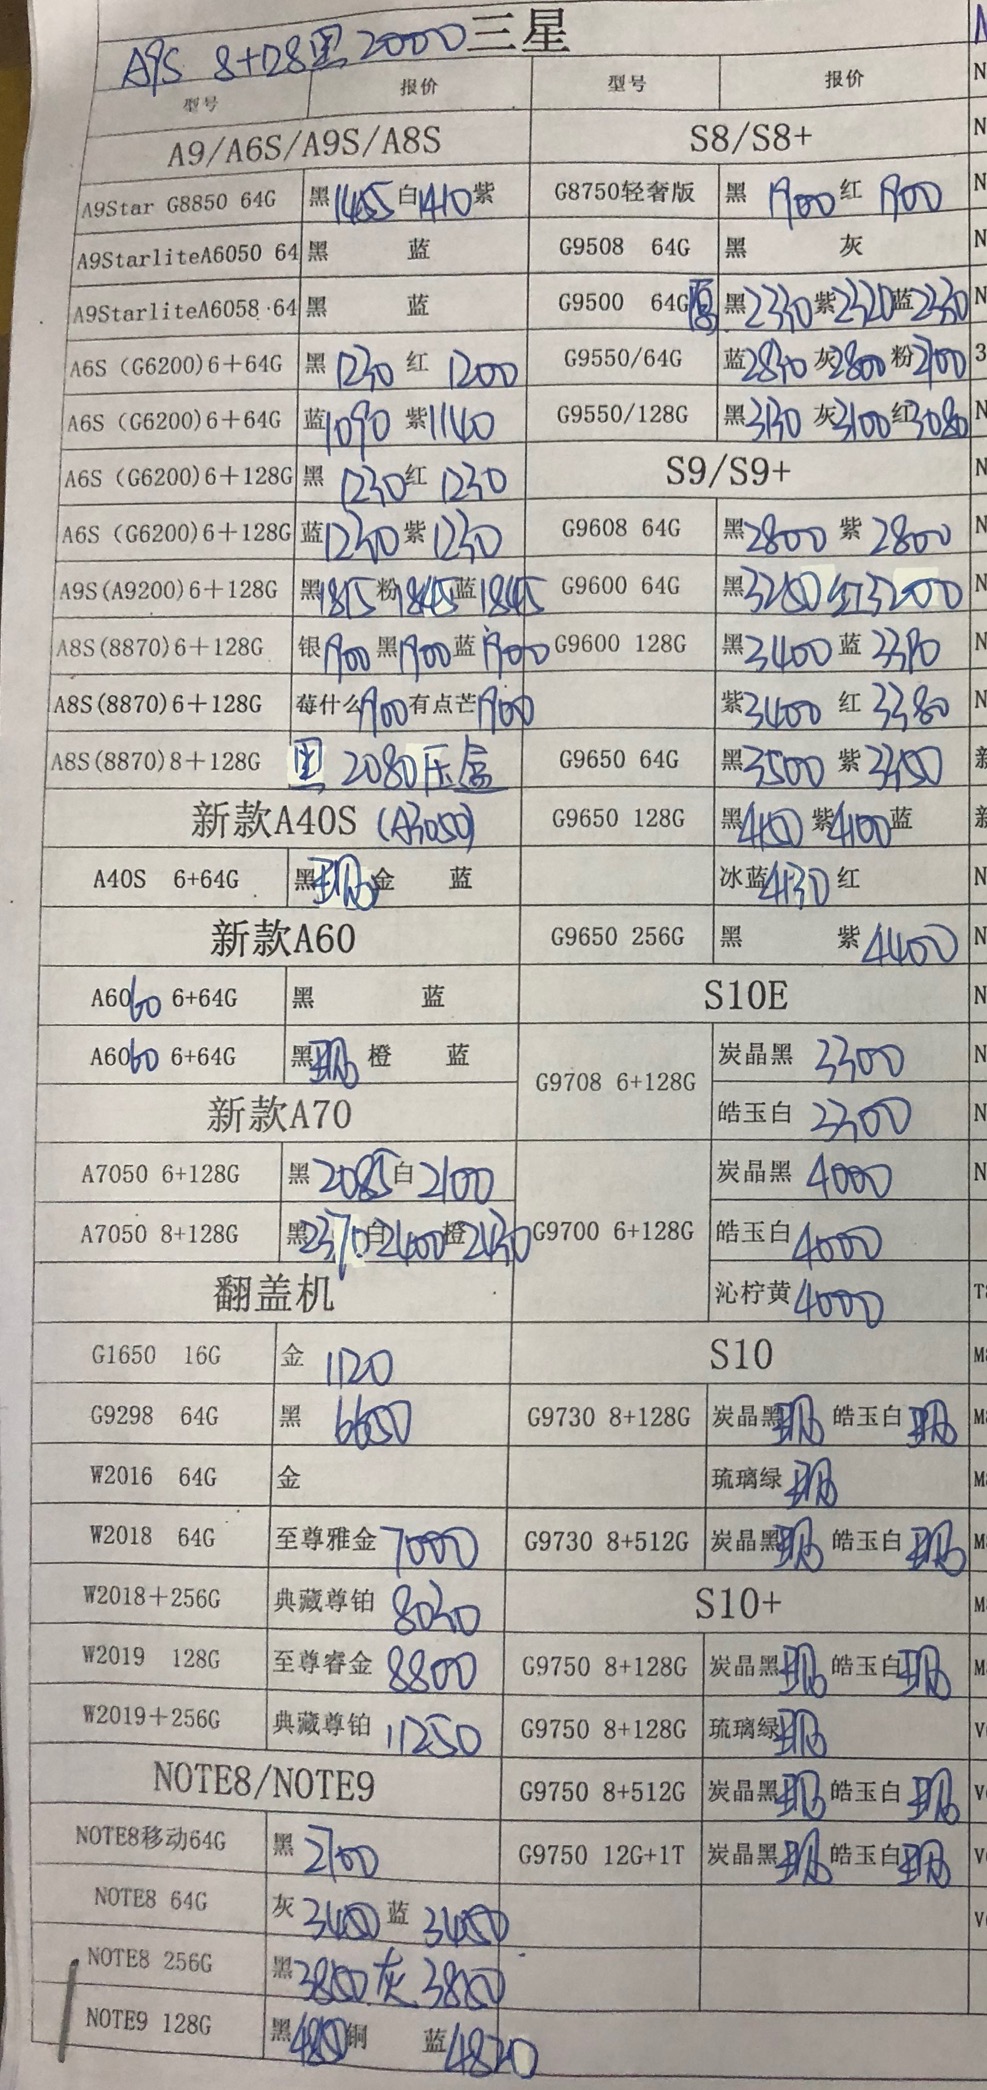 A9S 8+128黑2000 三星
型号 报价 型号 报价
A9/A6S/A9S/A8S S8/S8+
A9Star G8850 64G 黑1455 白1410 紫 G8750轻奢版 黑 1900 红 1900
A9StarliteA6050 64 黑 蓝 G9508 64G 黑 灰
A9StarliteA6058·64 黑 蓝 G9500 64G 黑2330 紫2320 蓝2330
A6S (G6200)6+64G 黑 1230 红 1200 G9550/64G 蓝2830 灰2800 粉2700
A6S (G6200)6+64G 蓝1090 紫1140 G9550/128G 黑3130 灰3100 红3080
A6S (G6200)6+128G 黑 1230 红 1230 S9/S9+
A6S (G6200)6+128G 蓝1230 紫1230 G9608 64G 黑2800 紫 2800
A9S(A9200)6+128G 黑1815 粉1845 蓝1845 G9600 64G 黑3250 红3200
A8S(8870)6+128G 银1900 黑1900 蓝1900 G9600 128G 黑3400 蓝 3390
A8S(8870)6+128G 莓什么1900 有点芒1900 紫3400 红 3380
A8S(8870)8+128G 黑 2080压盒 G9650 64G 黑3500 紫3450
新款A40S (A3050) G9650 128G 黑4150 紫4100 蓝
A40S 6+64G 黑 金 蓝 冰蓝4130 红
新款A60 G9650 256G 黑 紫4400
A6060 6+64G 黑 蓝 S10E
A6060 6+64G 黑 橙 蓝 G9708 6+128G 炭晶黑 3300
新款A70 皓玉白 3300
A7050 6+128G 黑2085 白2100 炭晶黑 4000
A7050 8+128G 黑2370 白2400 橙2430 G9700 6+128G 皓玉白4000
翻盖机 沁柠黄4000
G1650 16G 金 1120 S10
G9298 64G 黑 6650 G9730 8+128G 炭晶黑 皓玉白
W2016 64G 金 琉璃绿
W2018 64G 至尊雅金 7000 G9730 8+512G 炭晶黑 皓玉白
W2018+256G 典藏尊铂 8030 S10+
W2019 128G 至尊睿金 8800 G9750 8+128G 炭晶黑 皓玉白
W2019+256G 典藏尊铂 11250 G9750 8+128G 琉璃绿
NOTE8/NOTE9 G9750 8+512G 炭晶黑 皓玉白
NOTE8移动64G 黑 2700 G9750 12G+1T 炭晶黑 皓玉白
NOTE8 64G 灰 3450 蓝 3450
NOTE8 256G 黑3850 灰 3850
NOTE9 128G 黑 铜 蓝4820